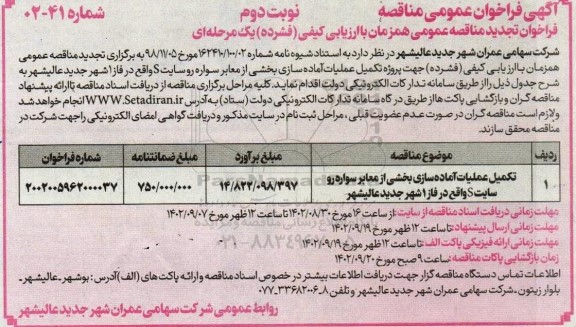 آگهی فراخوان عمومی مناقصه نوبت دوم شماره ۴۱-۰۲
فراخوان تجدید مناقصه عمومی همزمان با ارزیابی کیفی (فشرده) یک مرحله‌ای
شرکت سهامی عمران شهر جدید عالیشهر در نظر دارد به استناد شیوه نامه شماره ۱۶۲۴۱۰/۱۰۰/۰۲ مورخ ۹۸/۱۱/۰۵ به برگزاری تجدید مناقصه عمومی
همزمان با ارزیابی کیفی (فشرده) جهت پروژه تکمیل عملیات آماده سازی بخشی از معابر سواره رو سایت S واقع در فاز ۱ شهر جدید عالیشهر به
شرح جدول ذیل را از طریق سامانه تدارکات الکترونیکی دولت اقدام نماید. کلیه مراحل برگزاری مناقصه از دریافت اسناد مناقصه تا ارائه پیشنهاد
مناقصه گران و بازگشایی پاکت ها از طریق درگاه سامانه تدارکات الکترونیکی دولت (ستاد) به آدرس WWW.Setadiran.ir انجام خواهد شد
ولازم است مناقصه گران در صورت عدم عضویت قبلی، مراحل ثبت نام در سایت مذکور و دریافت گواهی امضای الکترونیکی را جهت شرکت در
مناقصه محقق سازند.
ردیف موضوع مناقصه مبلغ برآورد مبلغ ضمانتنامه شماره فراخوان
۱ تکمیل عملیات آماده سازی بخشی از معابر سواره رو سایت S واقع در فاز ۱ شهر جدید عالیشهر ۱۴/۸۲۲/۰۹۸/۳۹۷ ۷۵۰/۰۰۰/۰۰۰ ۲۰۰۲۰۰۵۹۶۲۰۰۰۰۳۷
مهلت زمانی دریافت اسناد مناقصه از سایت: از ساعت ۱۶ مورخ ۱۴۰۲/۰۸/۳۰ تا ساعت ۱۲ ظهر مورخ ۱۴۰۲/۰۹/۰۷
مهلت زمانی ارسال پیشنهاد: تا ساعت ۱۲ ظهر مورخ ۱۴۰۲/۰۹/۱۹
مهلت زمانی ارائه فیزیکی پاکت الف: تا ساعت ۱۲ ظهر مورخ ۱۴۰۲/۰۹/۱۹
زمان بازگشایی پاکات مناقصه: ساعت ۹ صبح مورخ ۱۴۰۲/۰۹/۲۰
اطلاعات تماس دستگاه مناقصه گزار جهت دریافت اطلاعات بیشتر در خصوص اسناد مناقصه و ارائه پاکت های (الف) آدرس: بوشهر ـ عالیشهر ـ
بلوار زیتون ـ شرکت سهامی عمران شهر جدید عالیشهر و تلفن ۸-۳۳۶۸۲۰۰۶-۰۷۷
روابط عمومی شرکت سهامی عمران شهر جدید عالیشهر